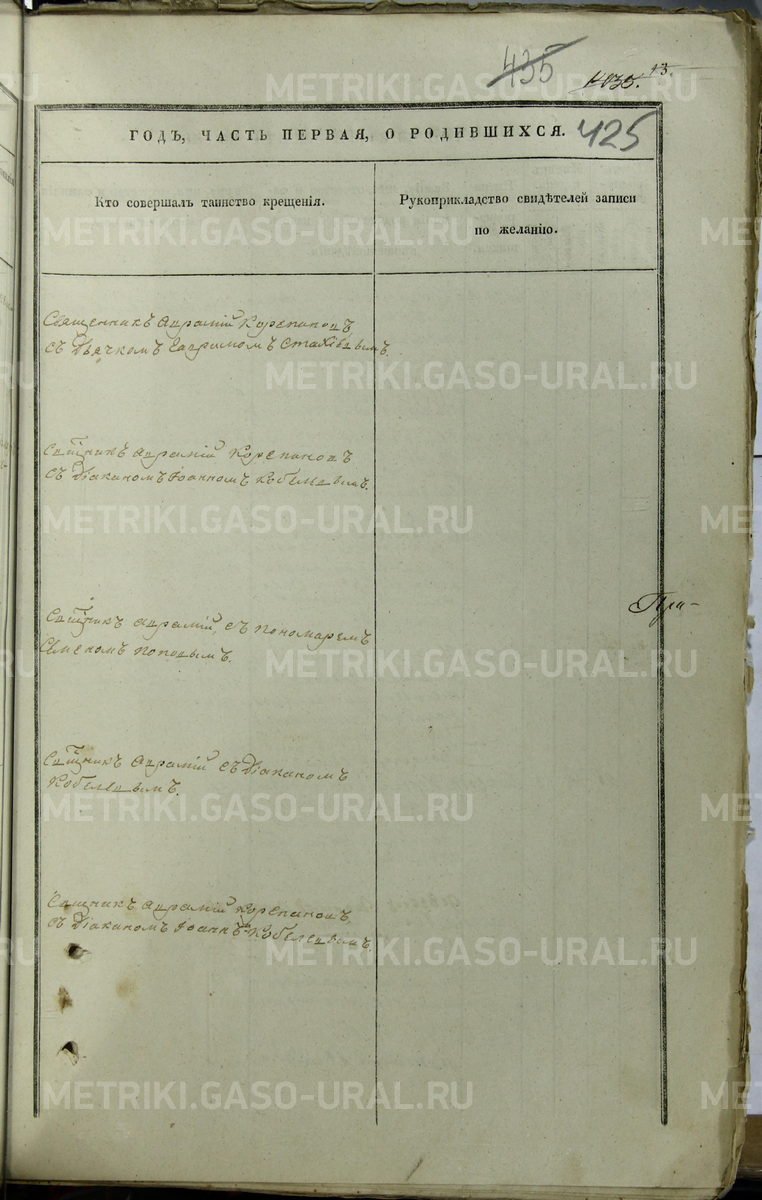 435
435. 43.
ГОДЪ, ЧАСТЬ ПЕРВАЯ, О РОДИВШИХСЯ. 425
Кто совершалъ таинство крещенія.
Рукоприкладство свидѣтелей записи
по желанію.
Священникъ Авраамій Корепановъ,
съ Дьячкомъ Стахіевымъ.
Сщнникъ Авраамій Корепановъ
съ Діакономъ Іоанномъ Кобелевымъ.
Сщнникъ Авраамій, съ пономаремъ
Поповымъ.
Сщнникъ Авраамій съ Діакономъ
Кобелевымъ.
Сщнникъ Авраамій Корепановъ,
съ Діакономъ Іоанномъ Кобелевымъ.
При-
METRIKI.GASO-URAL.RU